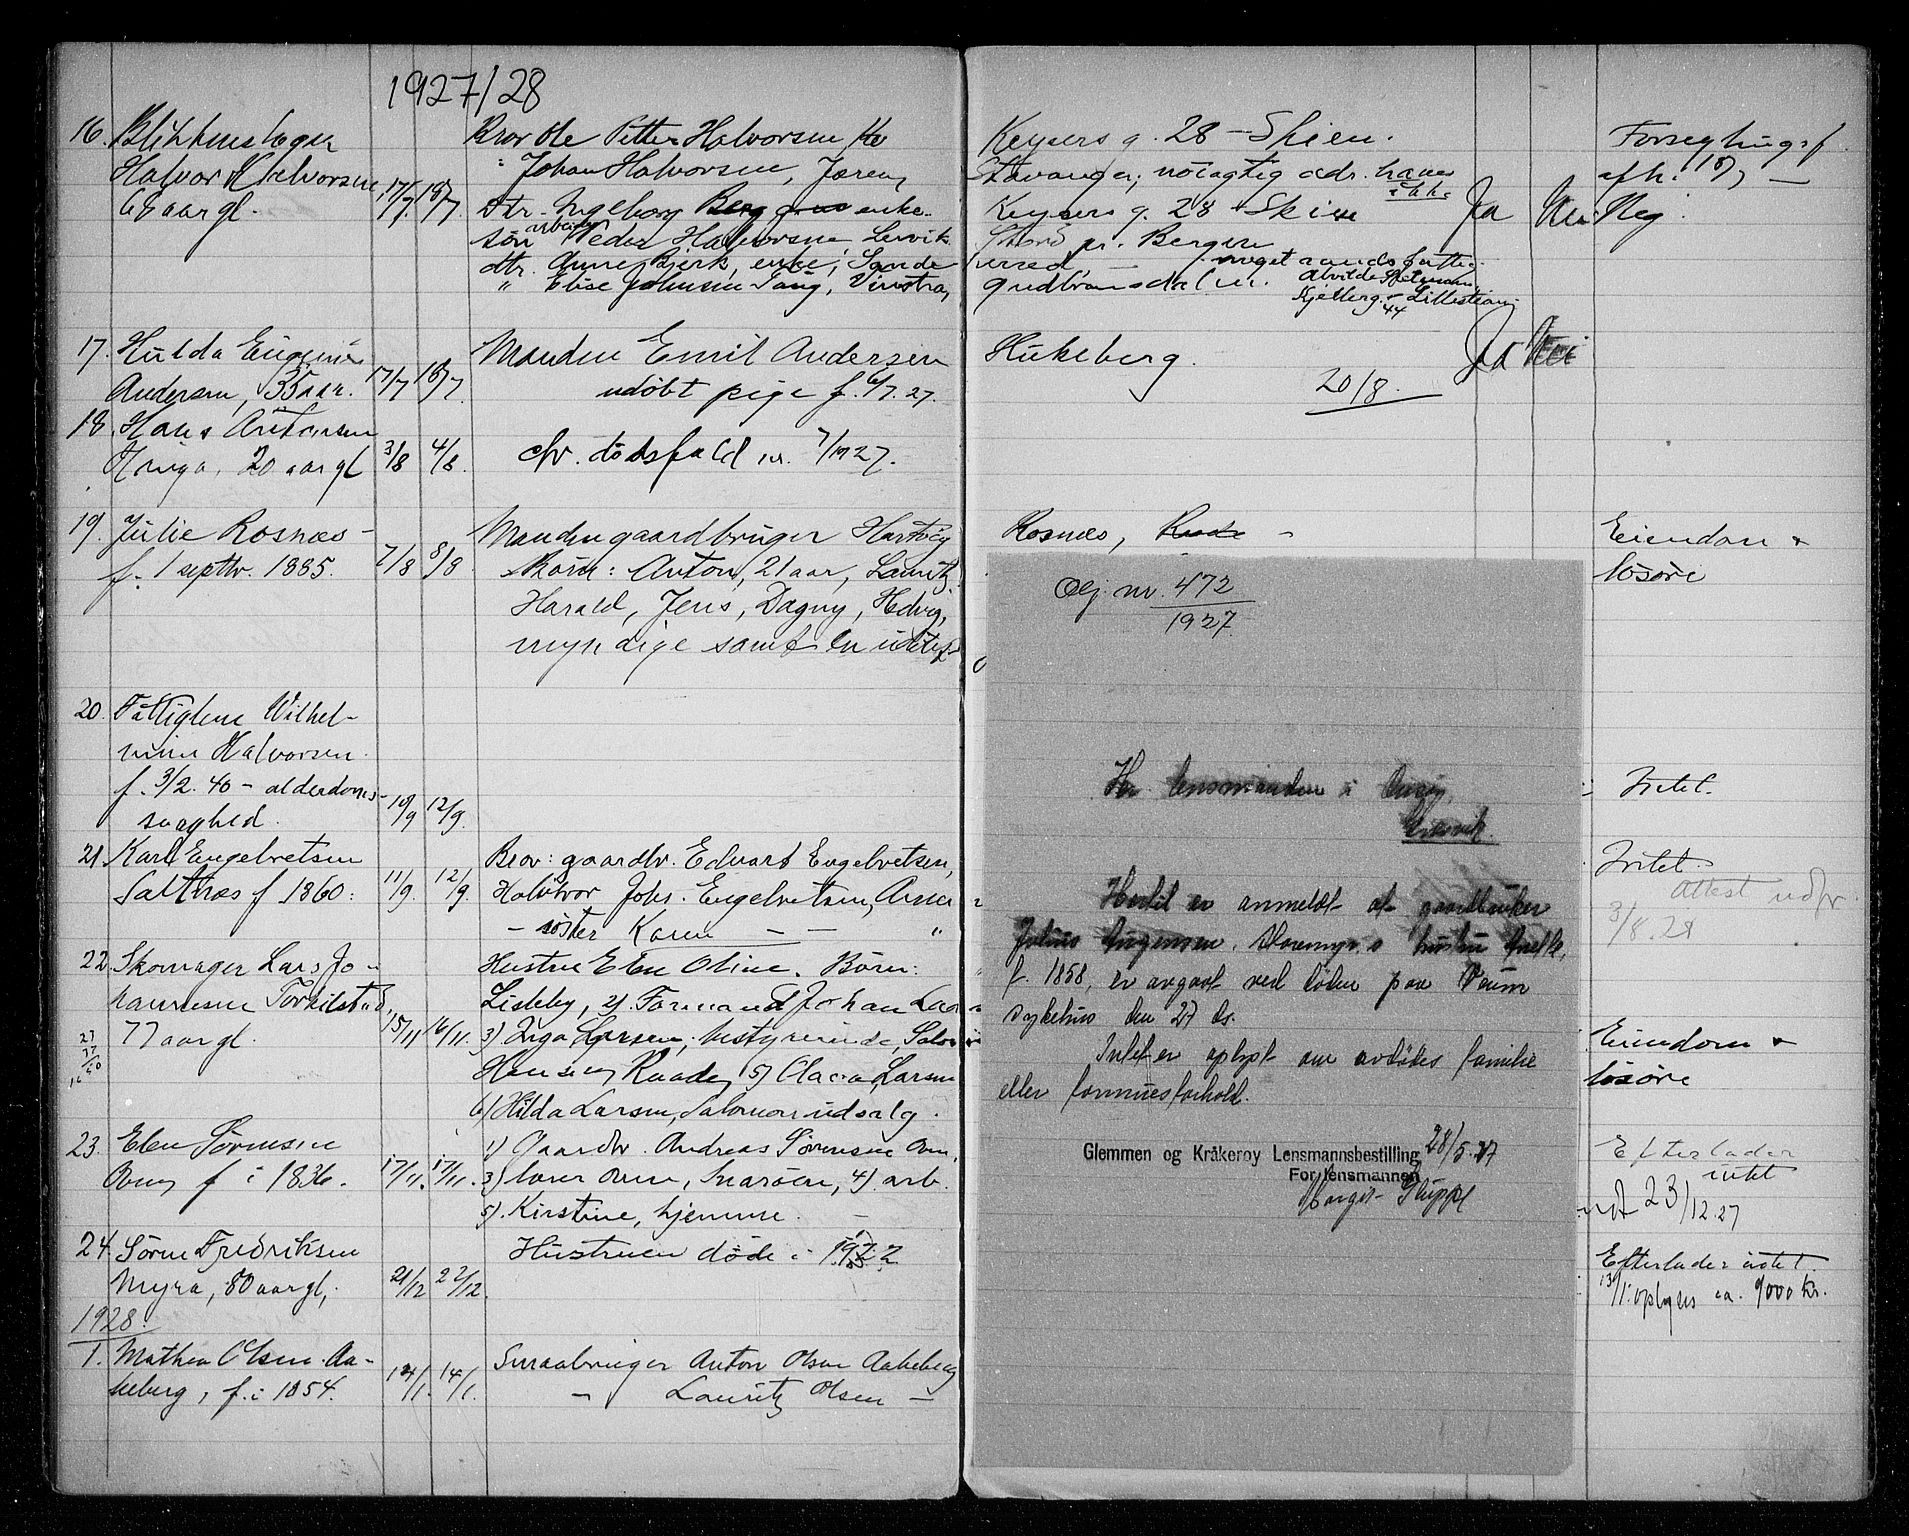 1927/28
16. Blikkenslager
Halvor Halvorsen,
68 aar gl. 17/7 18/7
Bror Ole Petter Halvorsen
Johan Halvorsen, Jæren,
dtr. Ingeborg Berg enke.
søn Peder Halvorsen, Lervik
dtr. Anne Bjerk, enke, Sande
" Elise Johnsen Saug, Vinstra,
Keysers g. 28 - Skien.
Stavanger, nöiagtig adr. haves
ikke
Keysers g. 28 Skien Ja Nei Nej
Stord pr. Bergen
herred
Gudbransdalen.
Lillestrøm
44
Forsegling
afh. 18/7 -
17. Hulda Eugenie
Andersen, 35 aar. 17/7 18/7
Manden Emil Andersen
udøbt pige f. 6/7.27.
Hukeberg. Ja Nei
20/8.
18. Hans Antonsen
20 aar gl 3/8 4/8.
cfr. dødsfald nr. 7/1927.
19. Julie Rosnæs -
f. 1 septbr. 1885. 7/8 8/8
Manden gaardbruger Hartvig
Børn: Anton, 21 aar, Lauritz,
Harald, Jens, Dagny, Hedvig,
myndige samt en
Rosnæs,
Eiendom +
løsöre
20. Fattiglem Wilhel-
mine Halvorsen
f. 3/2. 40 - alderdoms-
svaghed. 10/9 12/9.
Intet.
21. Karl Engelvetsen
Saltnæs f 1860: 11/9. 12/9.
Bror: gaardbr. Edvart Engelvetsen,
Halvbror Johs. Engelvetsen,
- søster Karen - - "
Intet.
Attest udfr.
3/8.28
22. Skomager Lars Jo-
hannesen Torkilstad,
77 aar gl. 15/11 16/11.
27
77
Hustru Elen Oline. Børn:
Lisleby, 2) Formand Johan
3) Inga Larsen, bestyrerinde,
Hansen, Raade, 5) Clara Larsen
6) Hilda Larsen, Salomon udsalg.
Eiendom +
løsöre
23. Elen Sørensen
Oven, f i 1836. 17/11. 17/11.
1) Gaardbr. Andreas Sørensen Oven,
3) Oven, Snarøen, 4) arb.
5) Kirstine, hjemme.
Efterlader
intet
23/12.27
24. Søren Fredriksen
Myra, 80 aar gl, 21/12 22/12
Hustruen døde i 1922
Efterlader intet.
13/1: oplyses ca. 9000 kr.
1928.
1. Mathea Olsen Aa-
keberg, f. i 1854. 14/1. 14/1.
Smaabruger Anton Olsen Aakeberg
- Lauritz Olsen -
Olj. nr. 472
1927.
Hr. lensmanden i Onsøy,
Hertil er anmeldt at gaardbruker
Julius hustru
f. 1858, er avgaat ved døden paa Veum
sykehus den 27 ds.
Intet er oplyst om avdødes familie
eller formuesforhold.
Glemmen og Kråkerøy Lensmannsbestilling 28/5.27
For lensmannen
Margit